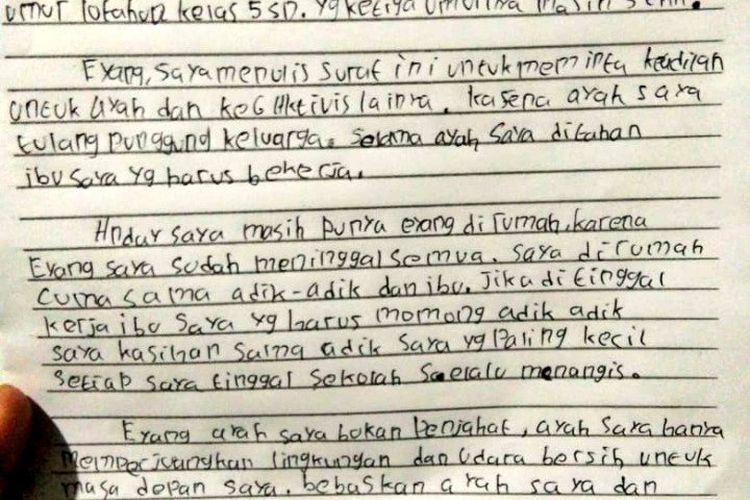 umur 10 tahun kelas 5 SD. yg ketiga umurnya masih 5 thn.
Eyang, saya menulis surat ini untuk meminta keadilan
untuk ayah dan ke 6 Aktivis lainya. Karena ayah saya
tulang punggung keluarga. Selama ayah saya ditahan
ibu saya yg harus bekerja.
Anday saya masih punya eyang di rumah, karena
Eyang saya sudah meninggal semua. saya di rumah
cuma sama adik-adik dan ibu. Jika di tinggal
kerja ibu saya yg harus momong adik adik
saya kasihan sama adik saya yg Paling kecil
setiap saya tinggal sekolah selalu menangis.
Eyang ayah saya bukan Penjahat, ayah saya hanya
memperjuangkan lingkungan dan udara bersih untuk
masa depan saya. bebaskan ayah saya dan